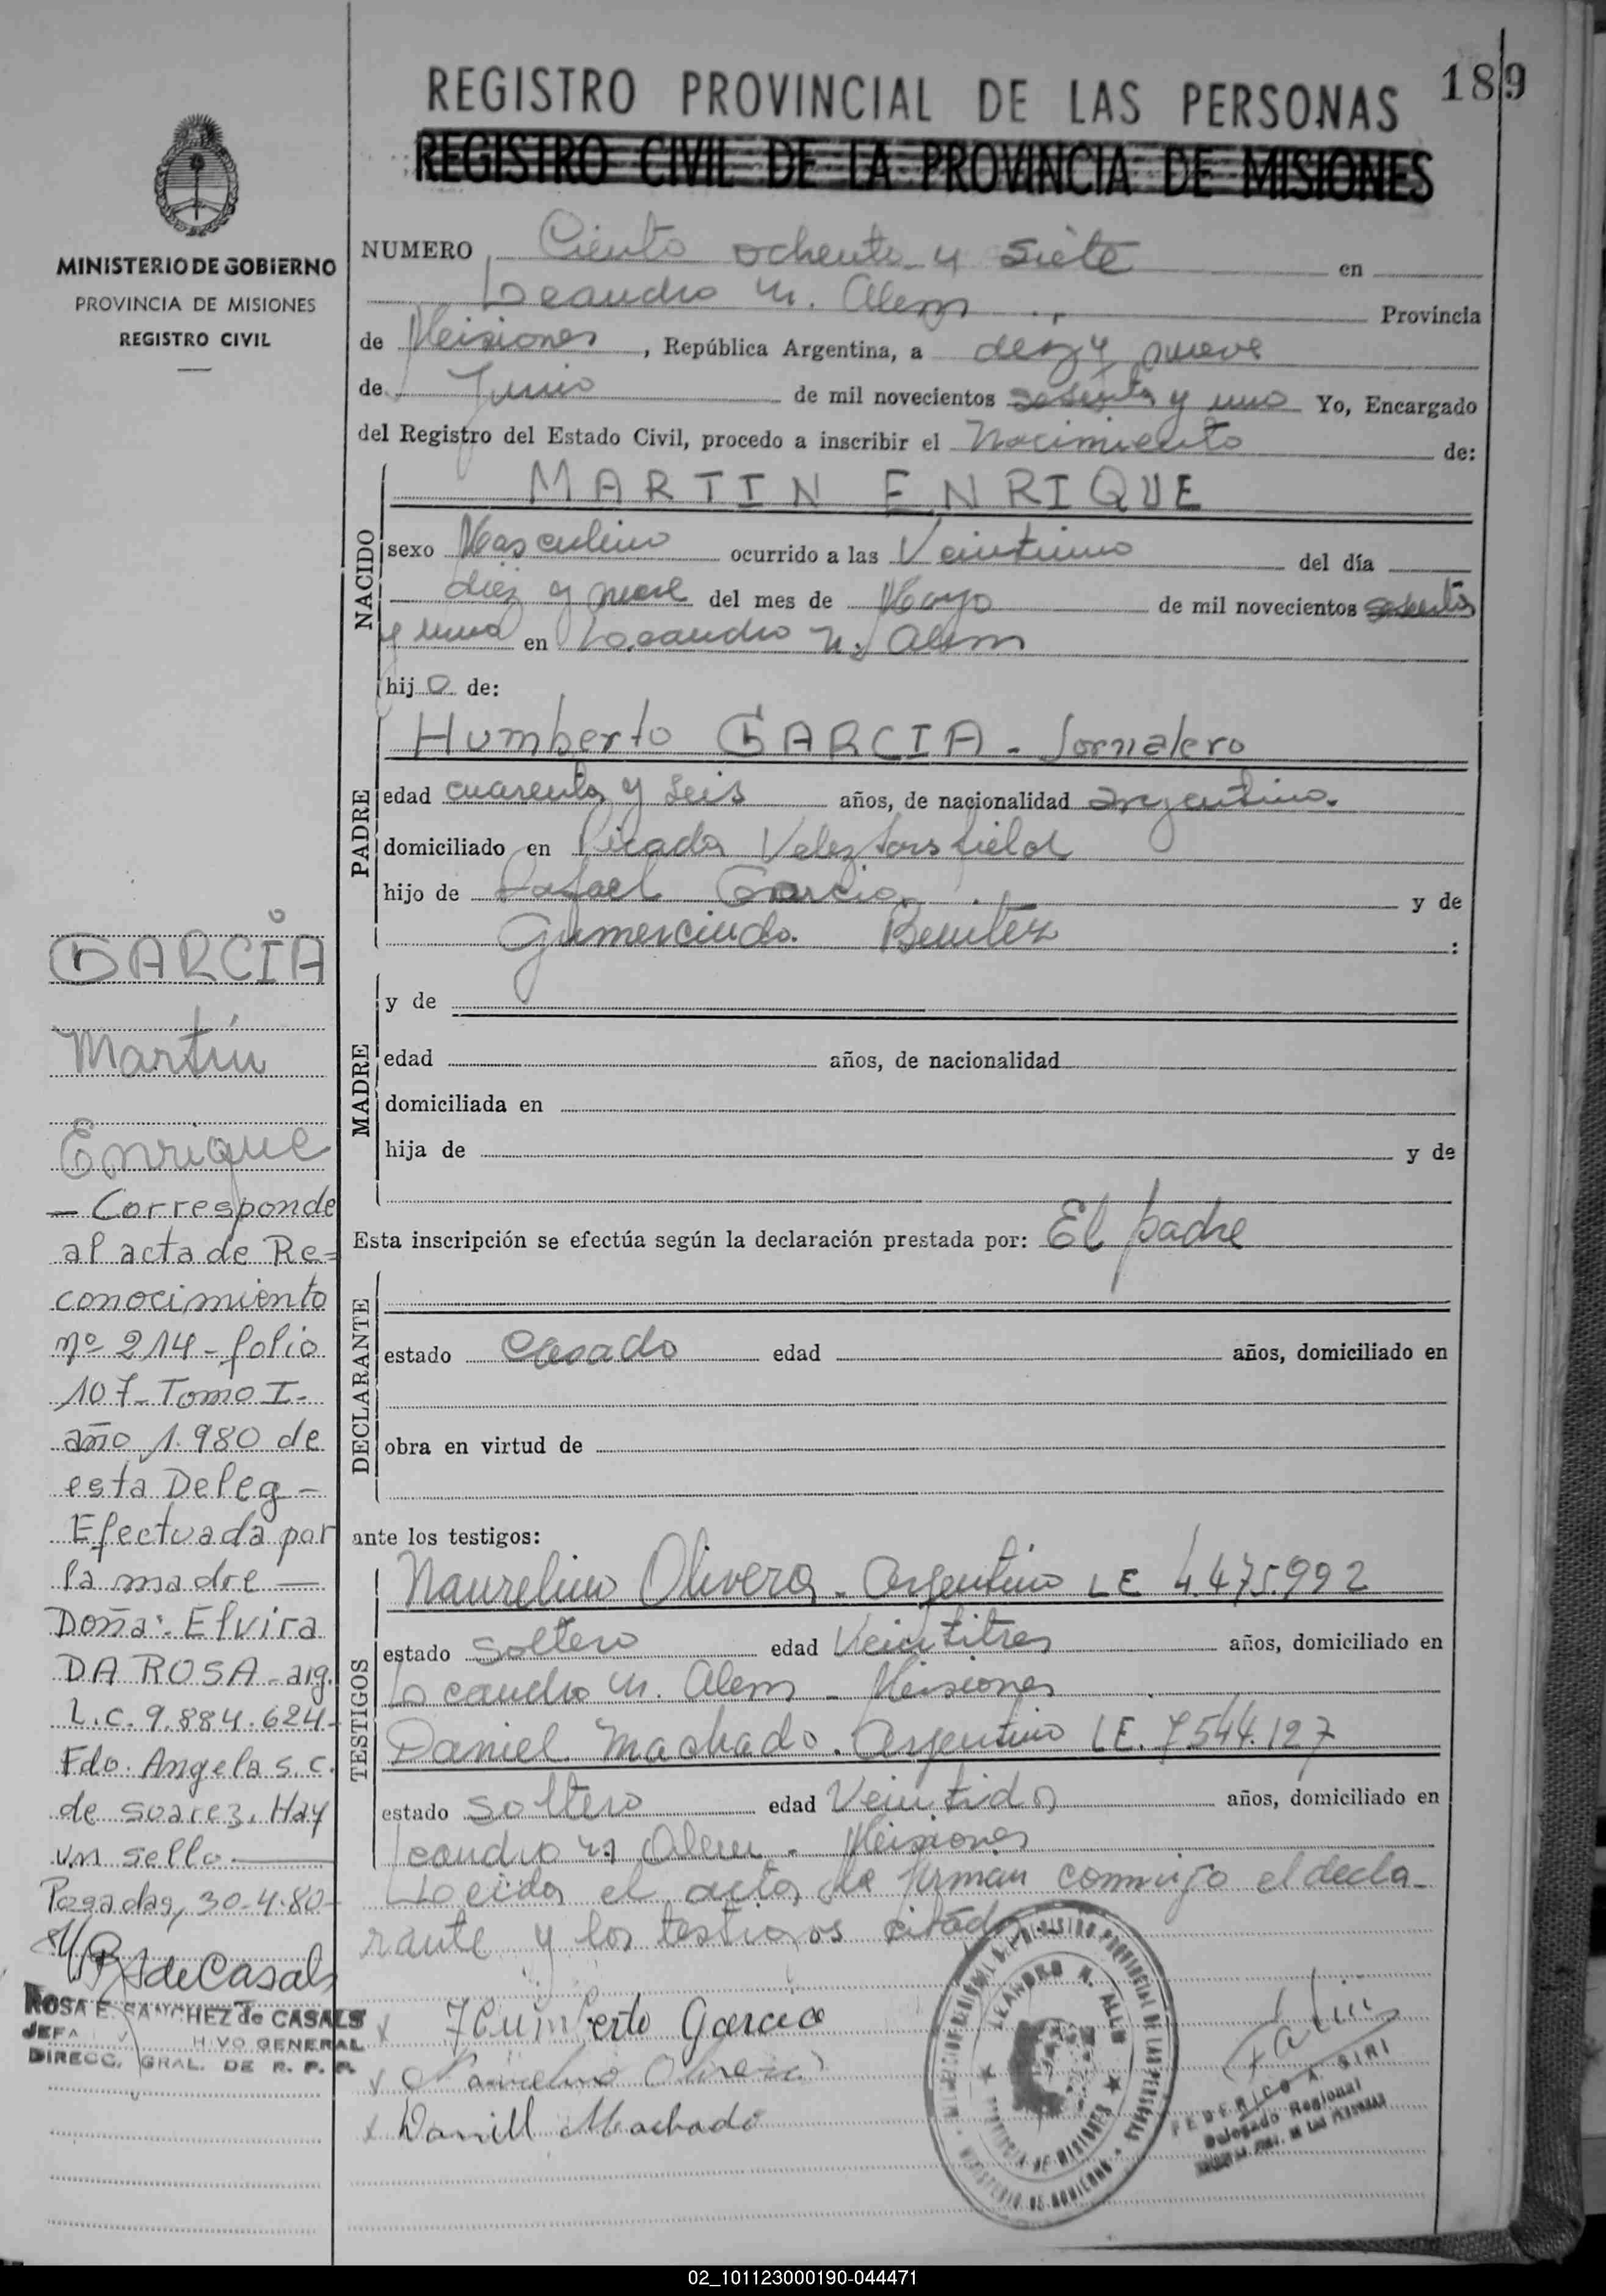 189
REGISTRO PROVINCIAL DE LAS PERSONAS
REGISTRO CIVIL DE LA PROVINCIA DE MISIONES
MINISTERIO DE GOBIERNO
PROVINCIA DE MISIONES
REGISTRO CIVIL
NUMERO Ciento ochenta y siete en
Leandro N. Alem Provincia
de Misiones, República Argentina, a diez y nueve
de Junio de mil novecientos sesenta y uno Yo, Encargado
del Registro del Estado Civil, procedo a inscribir el Nacimiento de:
NACIDO
MARTIN ENRIQUE
sexo Masculino ocurrido a las Veintiuno del día
diez y nueve del mes de Mayo de mil novecientos sesenta
y uno en Leandro N. Alem
hijo de:
PADRE
Humberto GARCIA - Jornalero
edad cuarenta y seis años, de nacionalidad argentino.
domiciliado en Picada Velez Sarsfield
hijo de Rafael Garcia y de
Gumercinda Benitez :
MADRE
y de
edad años, de nacionalidad
domiciliada en
hija de y de
Esta inscripción se efectúa según la declaración prestada por: El padre
DECLARANTE
estado Casado edad años, domiciliado en
obra en virtud de
ante los testigos:
TESTIGOS
Naurelino Olivera - Argentino LE 4.475.992
estado soltero edad Veintitres años, domiciliado en
Leandro N. Alem - Misiones
Daniel Machado. Argentino LE. 7544.127
estado soltero edad Veintidos años, domiciliado en
Leandro N Alem - Misiones
Leida el acta la firman conmigo el decla-
rante y los testigos citados
x Humberto Garcia
x Naurelino Olivera
x Daniel Machado
LEANDRO N. ALEM
PROVINCIA DE MISIONES
FEDERICO A. SIRI
Delegado Regional
GARCIA
Martín
Enrique
- Corresponde
al acta de Re=
conocimiento
nº 214 - folio
107 - Tomo I -
año 1.980 de
esta Deleg -
Efectuada por
la madre -
Doña: Elvira
DA ROSA - arg.
L.C. 9.884.624 -
Fdo. Angela S. C.
de Suarez. Hay
un sello.
Posadas, 30-4-80 -
de Casals
ROSA E. SANCHEZ de CASALS
JEFA HIVO GENERAL
DIRECC. GRAL. DE R. P. P.
02_101123000190-044471